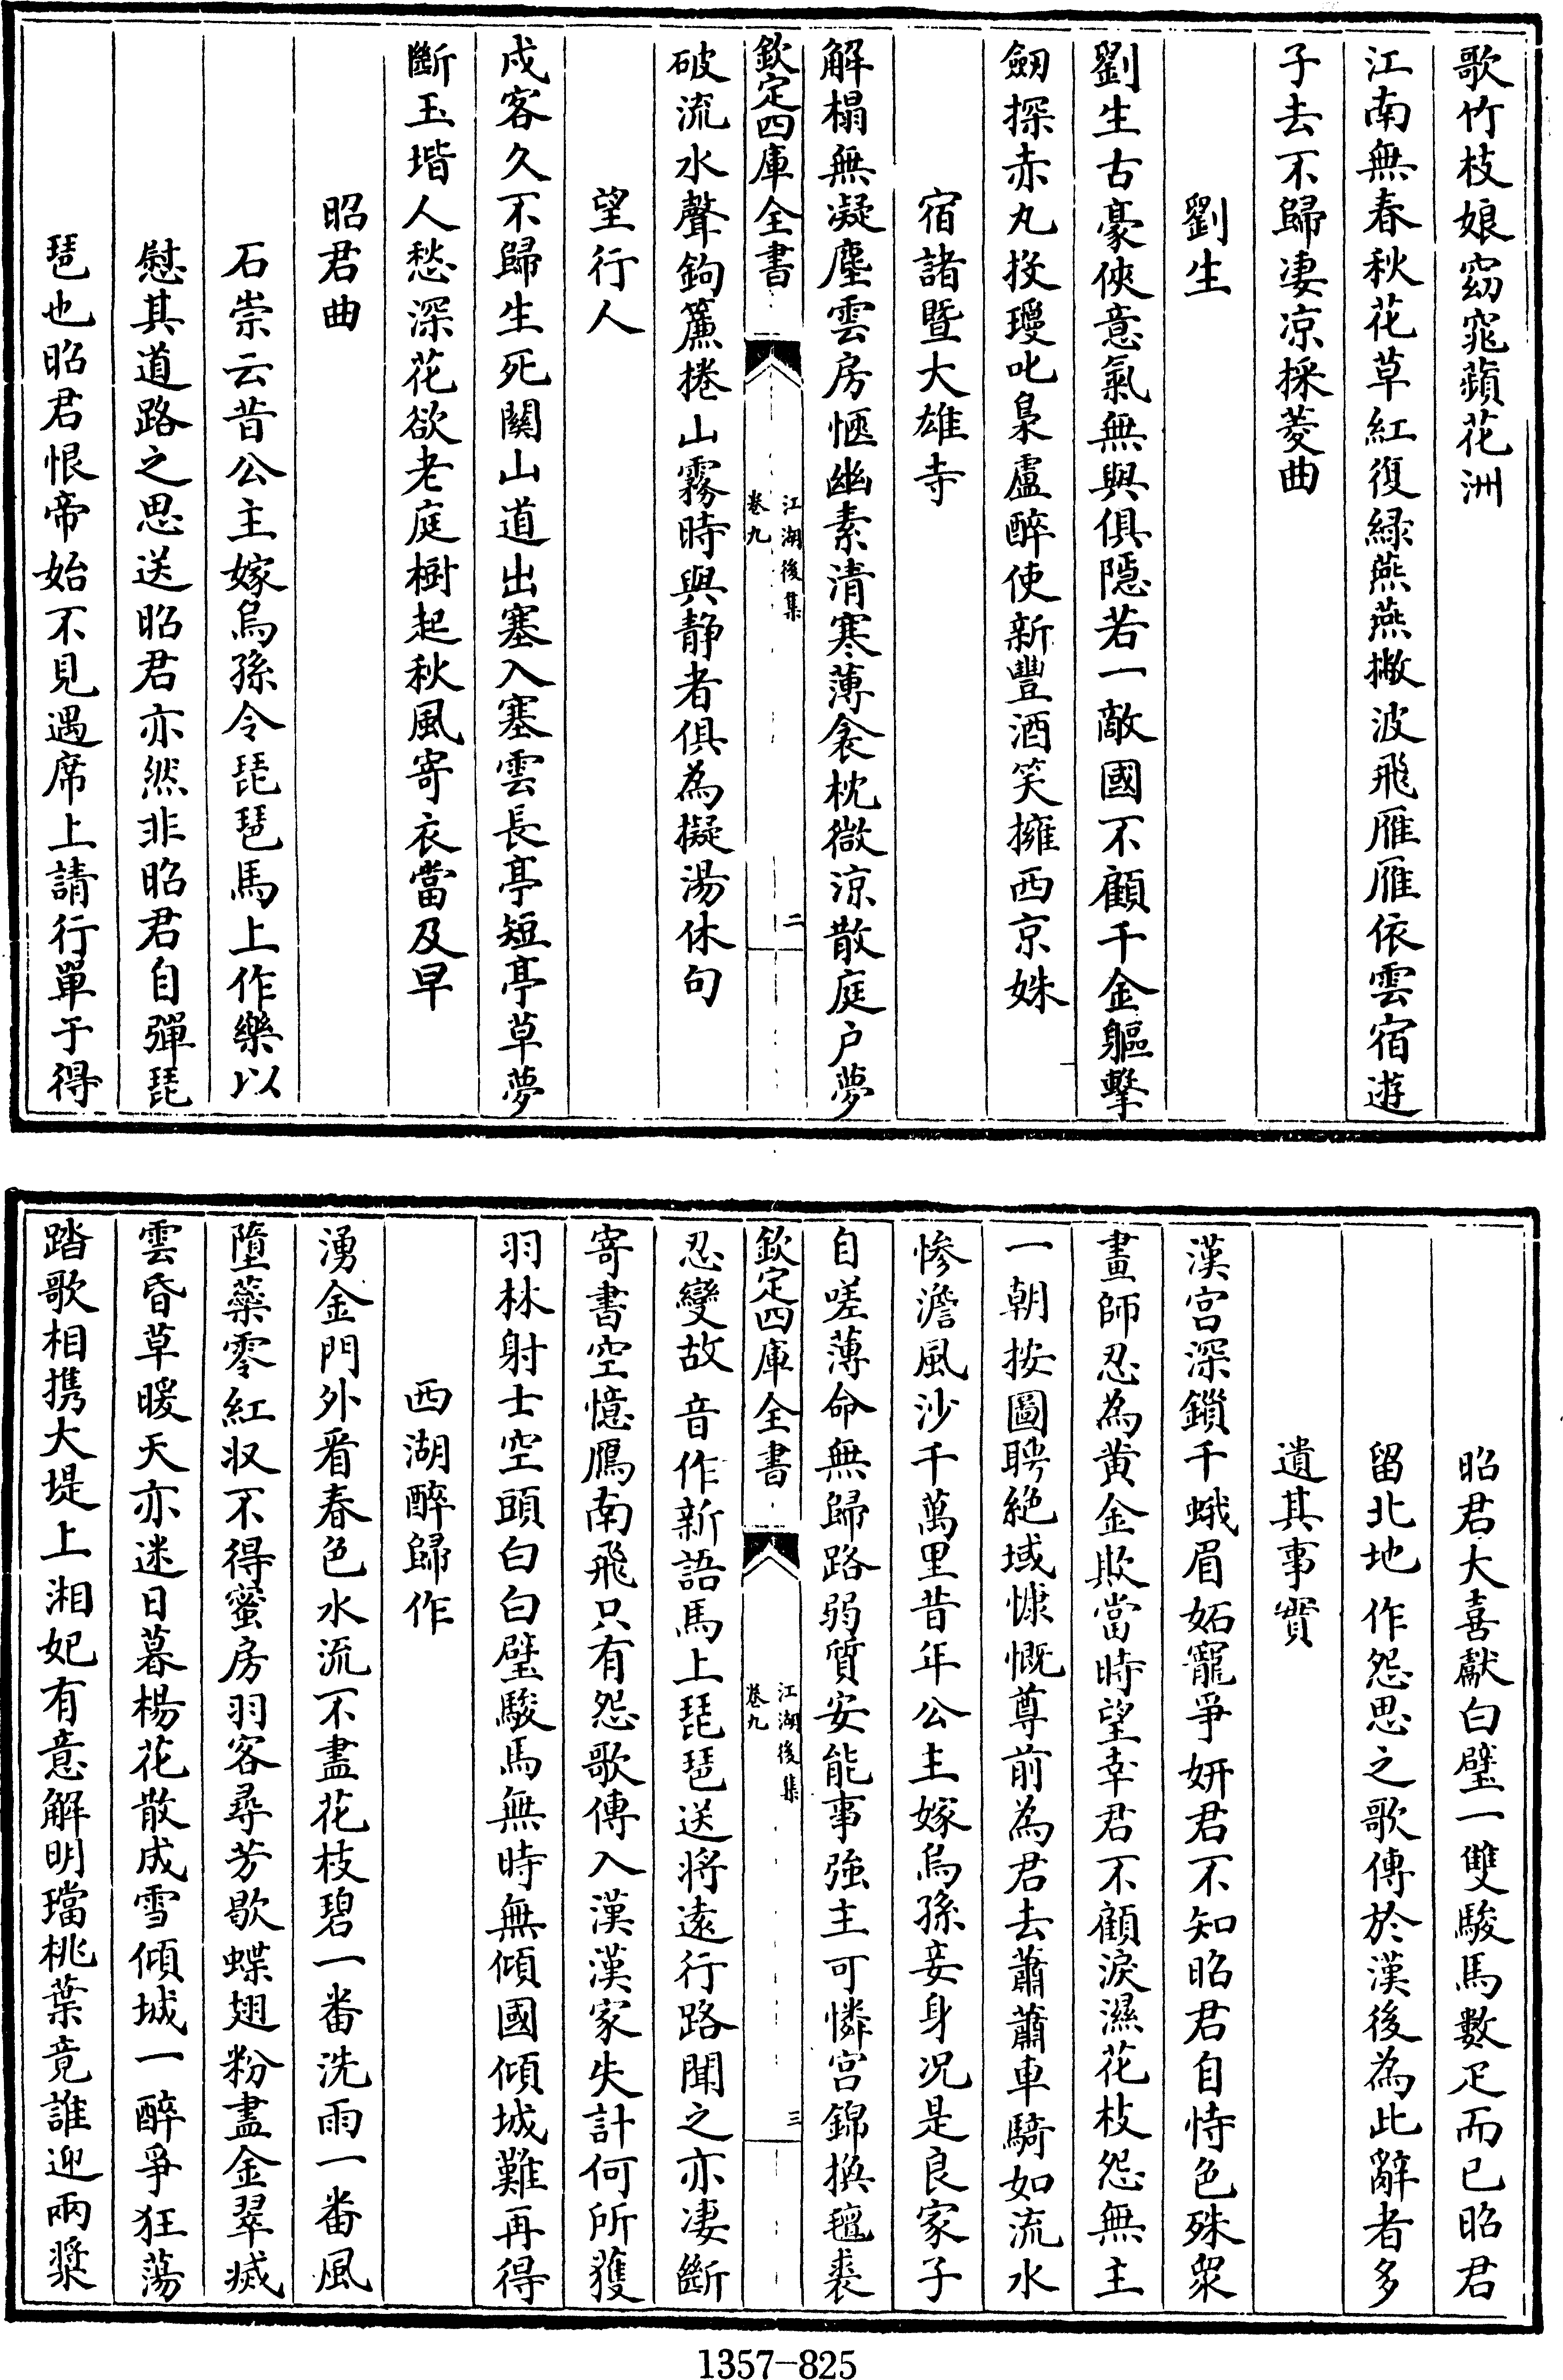 歌竹枝娘窈窕蘋花洲
江南無春秋花草紅復緑燕燕撇波飛雁雁依雲宿遊
子去不歸凄凉採菱曲
劉生
劉生古豪俠意氣無與俱隱若一敵國不顧千金軀擊
劒探赤丸投瓊叱梟盧醉使新豐酒笑擁西京姝
宿諸暨大雄寺
解榻無凝塵雲房愜幽素清寒薄衾枕微涼散庭户夢
欽定四庫全書
江湖後集
卷九
二
破流水聲鉤簾捲山霧時與静者俱為擬湯休句
望行人
戍客久不歸生死關山道出塞入塞雲長亭短亭草夢
斷玉堦人愁深花欲老庭樹起秋風寄衣當及早
昭君曲
石崇云昔公主嫁烏孫令琵琶馬上作樂以
慰其道路之思送昭君亦然非昭君自彈琵
琶也昭君恨帝始不見遇席上請行單于得
昭君大喜獻白璧一雙駿馬數疋而已昭君
留北地作怨思之歌傳於漢後為此辭者多
遺其事實
漢宫深鎖千蛾眉妬寵爭妍君不知昭君自恃色殊衆
畫師忍為黄金欺當時望幸君不顧淚濕花枝怨無主
一朝按圖聘絶域慷慨尊前為君去蕭蕭車騎如流水
慘澹風沙千萬里昔年公主嫁烏孫妾身况是良家子
自嗟薄命無歸路弱質安能事強主可憐宫錦換氊裘
欽定四庫全書
江湖後集
卷九
三
忍變故音作新語馬上琵琶送將遠行路聞之亦凄斷
寄書空憶鴈南飛只有怨歌傳入漢漢家失計何所獲
羽林射士空頭白白璧駿馬無時無傾國傾城難再得
西湖醉歸作
湧金門外看春色水流不盡花枝碧一番洗雨一番風
墮蘂零紅収不得蜜房羽客尋芳歇蝶翅粉盡金翠滅
雲昏草暖天亦迷日暮楊花散成雪傾城一醉爭狂蕩
踏歌相携大堤上湘妃有意解明璫桃葉竟誰迎兩槳
1357-825